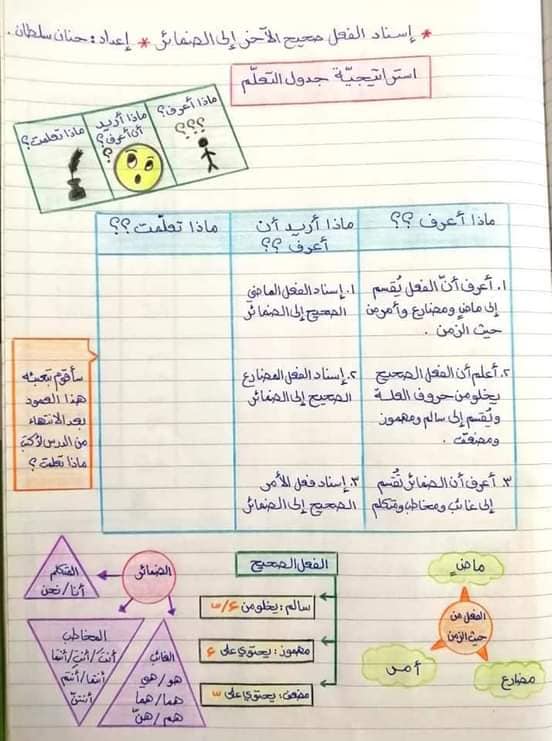 * إسناد الفعل صحيح الآخر إلى الضمائر * إعداد: حنان سلطان.
استراتيجيّة جدول التعلّم
ماذا أعرف؟
؟؟؟
ماذا أريد
أن أعرف؟
؟
ماذا تعلمت؟
ماذا أعرف ؟؟
ماذا أريد أن
أعرف ؟؟
ماذا تعلّمت ؟؟
١. أعرف أنّ الفعل يُقسم
إلى ماضٍ ومضارع وأمر من
حيث الزمن .
١. إسناد الفعل الماضي
الصحيح إلى الضمائر
٢. أعلم أن الفعل الصحيح
يخلو من حروف العلة
ويُقسم إلى سالم ومهموز
ومضعّف .
٢. إسناد الفعل المضارع
الصحيح إلى الضمائر
٣. أعرف أن الضمائر تُقسم
إلى غائب ومخاطب ومتكلم
٣. إسناد فعل الأمر
الصحيح إلى الضمائر
سأقوم بتعبئة
هذا العمود
بعد الانتهاء
من الدرس لأكتب
ماذا تعلمت ؟
الفعل من
حيث الزمن
ماضٍ
مضارع
أمر
الفعل الصحيح
سالم: يخلو من ء/ّ
مهموز: يحتوي على ء
مضعّف: يحتوي على ّ
الضمائر
المتكلم
أنا/نحن
المخاطب
أنتَ/أنتِ/أنتما
أنتما/أنتم
أنتنّ
الغائب
هو/هي
هما/هما
هم/هنّ